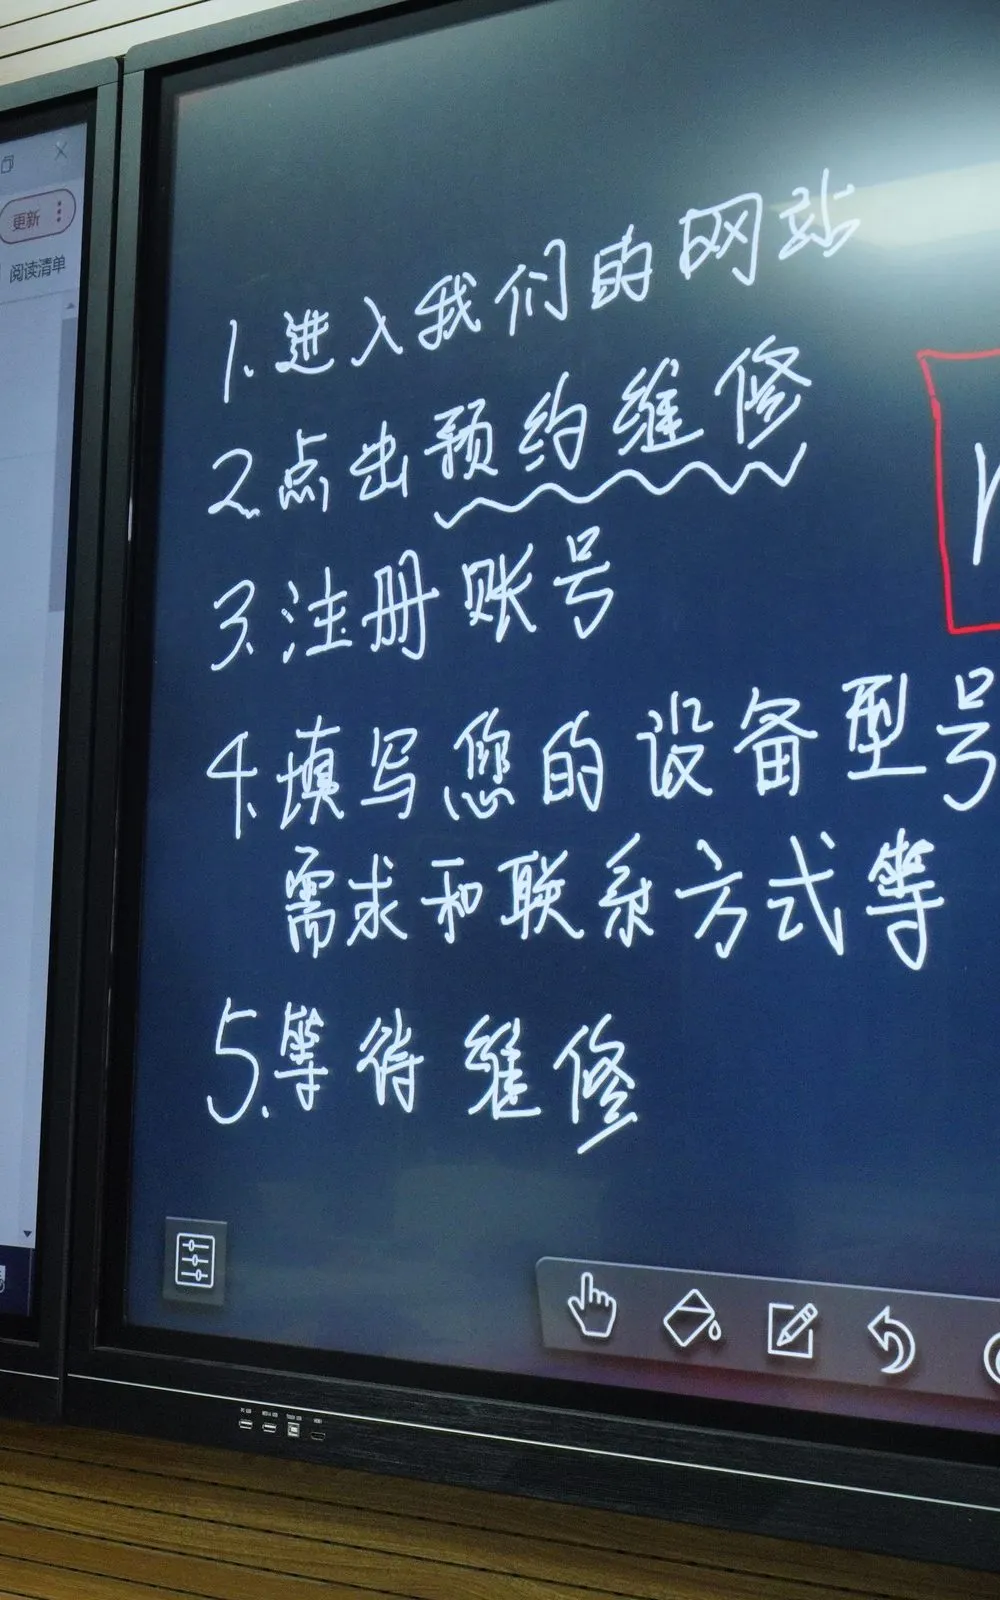 更新
阅读清单
1.进入我们的网站
2.点击预约维修
3.注册账号
4.填写您的设备型号
需求和联系方式等
5.等待维修